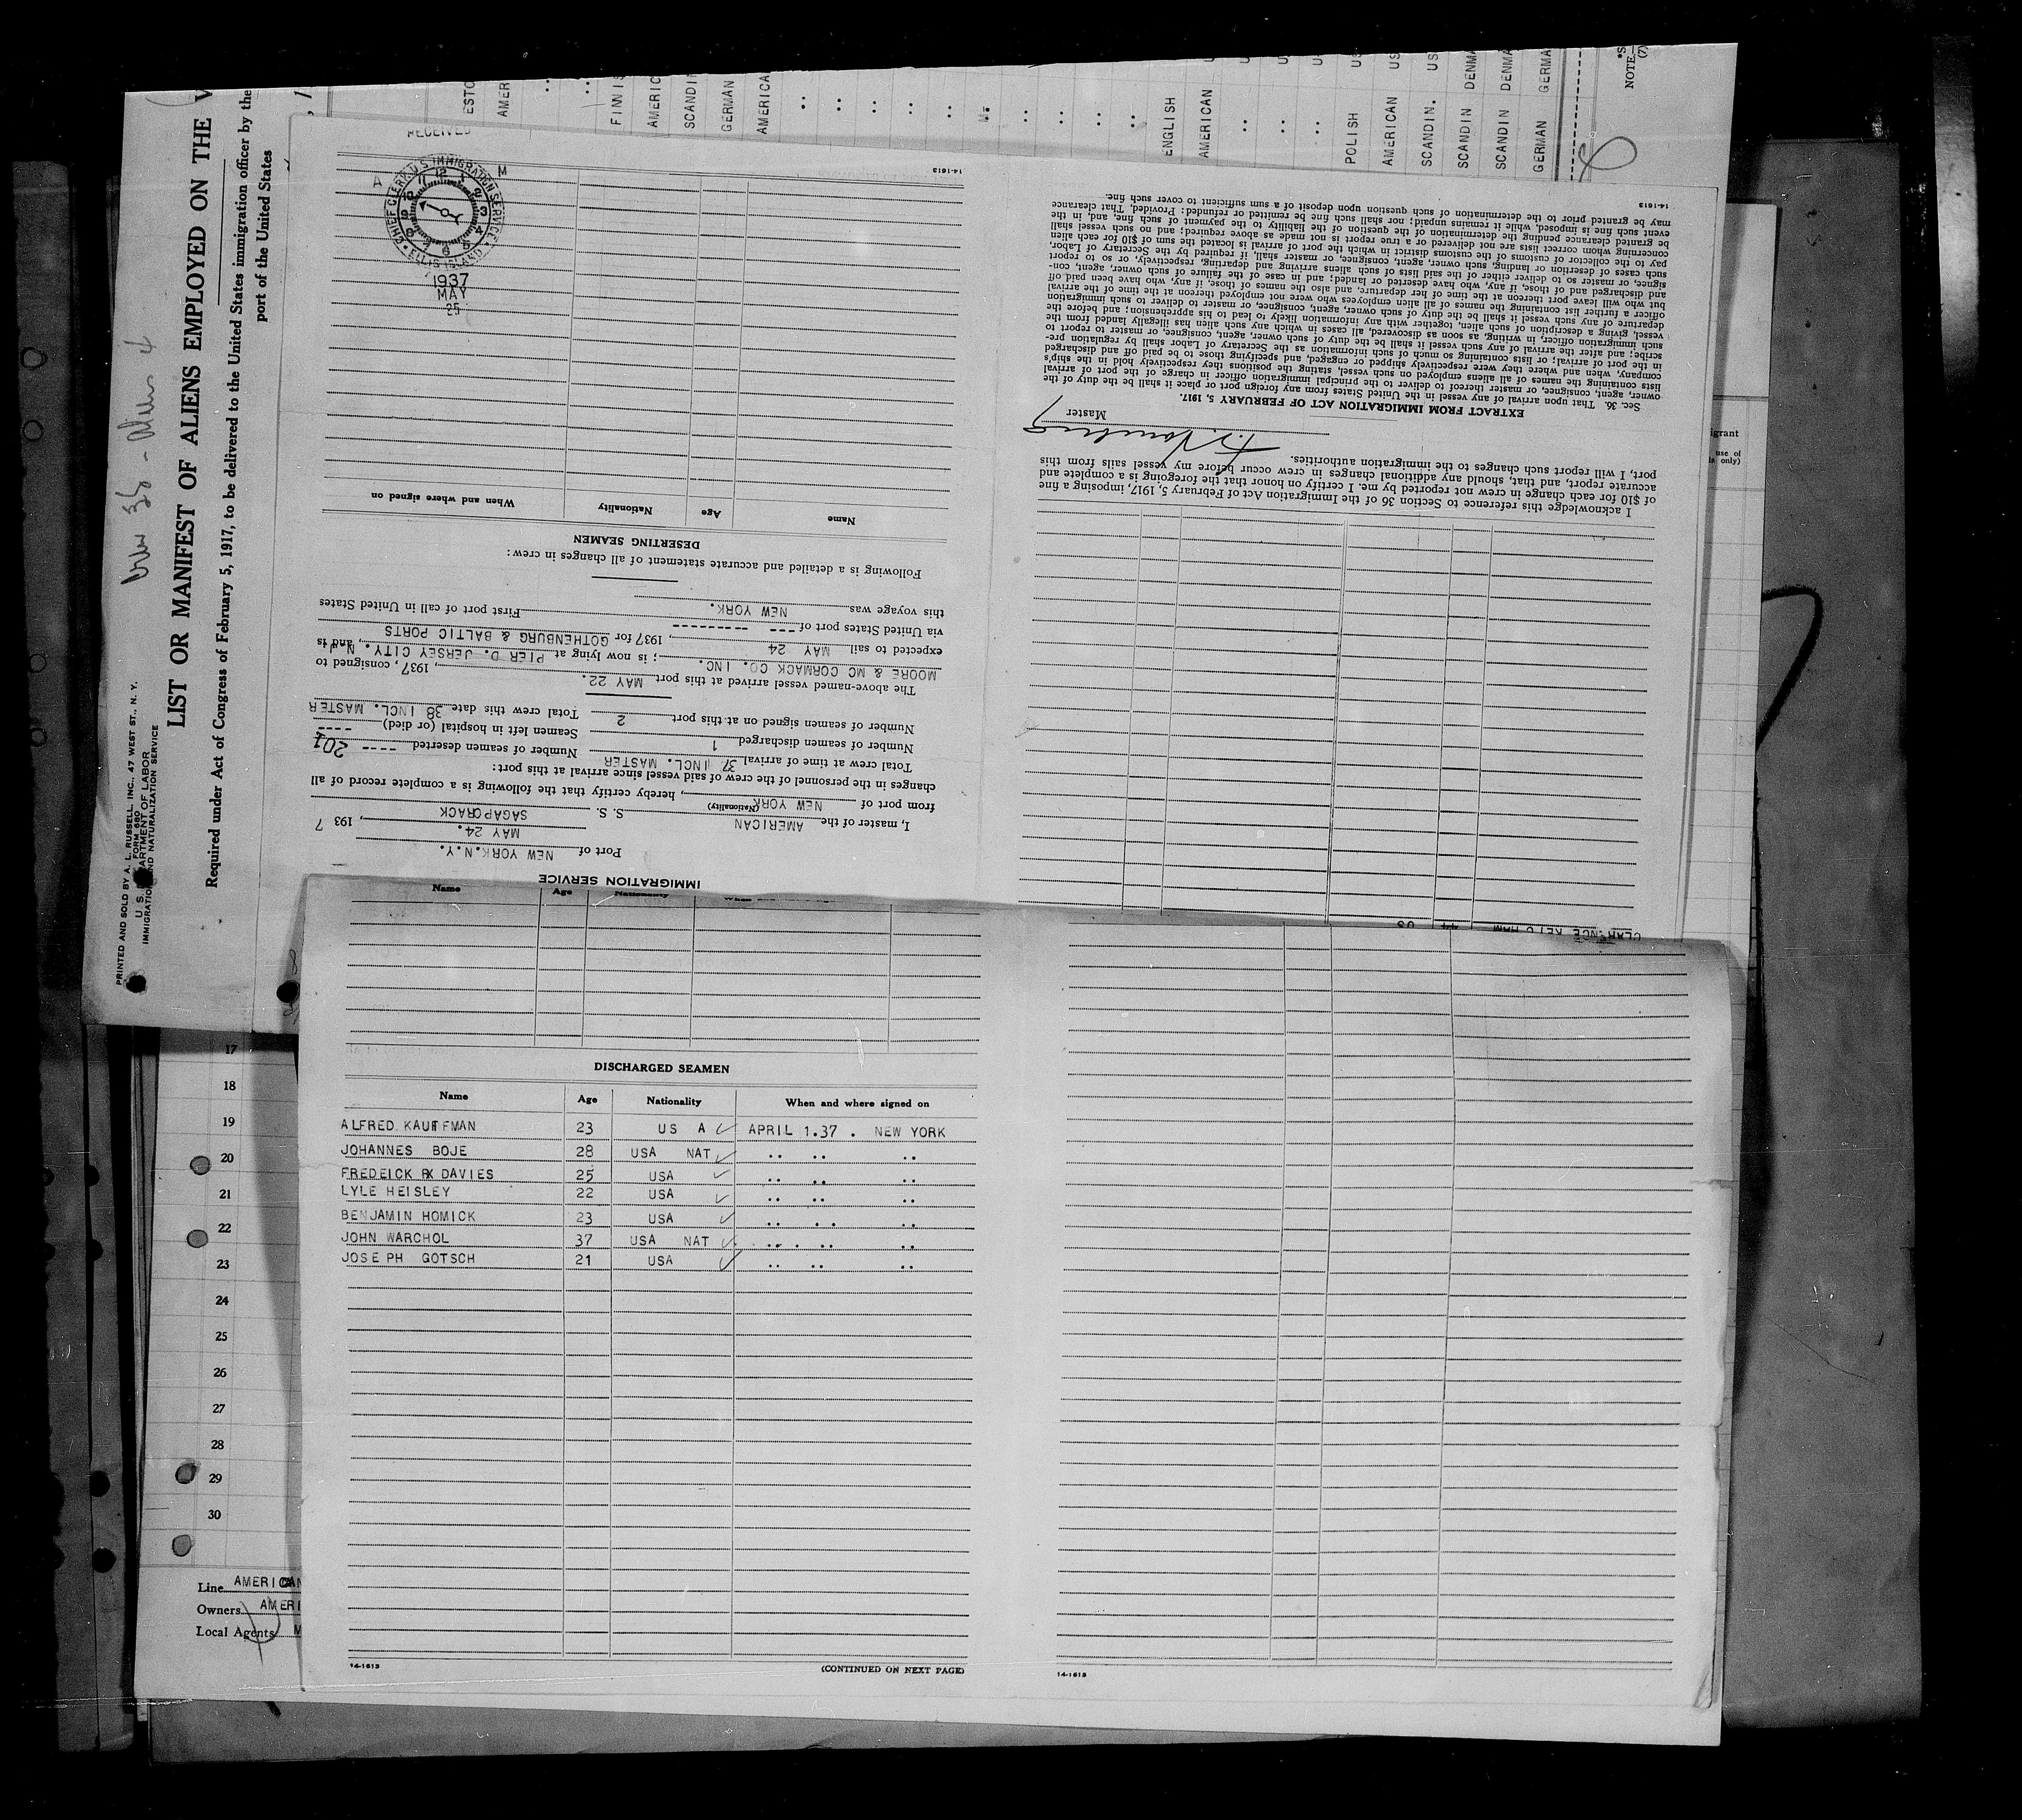 PRINTED AND SOLD BY A. L. RUSSELL, INC., 47 WEST ST., N. Y.
FORM 680
U. S. DEPARTMENT OF LABOR
IMMIGRATION AND NATURALIZATION SERVICE
LIST OR MANIFEST OF ALIENS EMPLOYED ON THE V
Required under Act of Congress of February 5, 1917, to be delivered to the United States immigration officer by the
port of the United States
Crew 38 - Aliens 4
ESTO
AMER
FINNIS
AMERIC
SCANDI
GERMAN
AMERICA
ENGLISH
AMERICAN U
POLISH US
AMERICAN US
SCANDIN. US
SCANDIN DENMA
SCANDIN DENMA
GERMAN GERMA
NOTE
(7)
IMMIGRATION SERVICE
Port of NEW YORK.N.Y.
MAY 24. , 193 7
I, master of the AMERICAN S. S. SAGAPORACK
(Nationality)
from port of NEW YORK , hereby certify that the following is a complete record of all
changes in the personnel of the crew of said vessel since arrival at this port:
Total crew at time of arrival 37 INCL. MASTER Number of seamen deserted ----
Number of seamen discharged 1 Seamen left in hospital (or died) ----
Number of seamen signed on at this port 2 Total crew this date 38 INCL. MASTER
201
The above-named vessel arrived at this port MAY 22. , 1937, consigned to
MOORE & MC CORMACK CO. INC. ; is now lying at PIER D. JERSEY CITY. N.J. , and is
expected to sail MAY 24 , 1937 for GOTHENBURG & BALTIC PORTS
via United States port of --- --------- First port of call in United States
this voyage was NEW YORK.
Following is a detailed and accurate statement of all changes in crew:
DESERTING SEAMEN
Name Age Nationality When and where signed on
RECEIVED
A M
CHIEF CLERK U.S. IMMIGRATION SERVICE
ELLIS ISLAND
1937
MAY
25
14-1613
CLARENCE KETCHAM 44 US
I acknowledge this reference to Section 36 of the Immigration Act of February 5, 1917, imposing a fine
of $10 for each change in crew not reported by me. I certify on honor that the foregoing is a complete and
accurate report, and that, should any additional changes in crew occur before my vessel sails from this
port, I will report such changes to the immigration authorities.
Master
EXTRACT FROM IMMIGRATION ACT OF FEBRUARY 5, 1917.
Sec. 36. That upon arrival of any vessel in the United States from any foreign port or place it shall be the duty of the
owner, agent, consignee, or master thereof to deliver to the principal immigration officer in charge of the port of arrival
lists containing the names of all aliens employed on such vessel, stating the positions they respectively hold in the ship's
company, when and where they were respectively shipped or engaged, and specifying those to be paid off and discharged
in the port of arrival; or lists containing so much of such information as the Secretary of Labor shall by regulation pre-
scribe; and after the arrival of any such vessel it shall be the duty of such owner, agent, consignee, or master to report to
such immigration officer, in writing, as soon as discovered, all cases in which any such alien has illegally landed from the
vessel, giving a description of such alien, together with any information likely to lead to his apprehension; and before the
departure of any such vessel it shall be the duty of such owner, agent, consignee, or master to deliver to such immigration
officer a further list containing the names of all alien employees who were not employed thereon at the time of the arrival
but who will leave port thereon at the time of her departure, and also the names of those, if any, who have been paid off
and discharged and of those, if any, who have deserted or landed; and in case of the failure of such owner, agent, con-
signee, or master so to deliver either of the said lists of such aliens arriving and departing, respectively, or so to report
such cases of desertion or landing, such owner, agent, consignee, or master shall, if required by the Secretary of Labor,
pay to the collector of customs of the customs district in which the port of arrival is located the sum of $10 for each alien
concerning whom correct lists are not delivered or a true report is not made as above required; and no such vessel shall
be granted clearance pending the determination of the question of the liability to the payment of such fine, and, in the
event such fine is imposed, while it remains unpaid; nor shall such fine be remitted or refunded: Provided, That clearance
may be granted prior to the determination of such question upon deposit of a sum sufficient to cover such fine.
14-1613
igrant
use of
ls only)
Name Age Nationality When
DISCHARGED SEAMEN
Name Age Nationality When and where signed on
ALFRED. KAUFFMAN 23 US A APRIL 1.37 . NEW YORK
JOHANNES BOJE 28 USA NAT .. .. ..
FREDEICK RX DAVIES 25 USA .. .. ..
LYLE HEISLEY 22 USA .. .. ..
BENJAMIN HOMICK 23 USA .. .. ..
JOHN WARCHOL 37 USA NAT .. . .. ..
JOSEPH GOTSCH 21 USA .. .. ..
14-1613
(CONTINUED ON NEXT PAGE)
14-1613
17
18
19
20
21
22
23
24
25
26
27
28
29
30
Line AMERICAN
Owners AMERI
Local Agents M